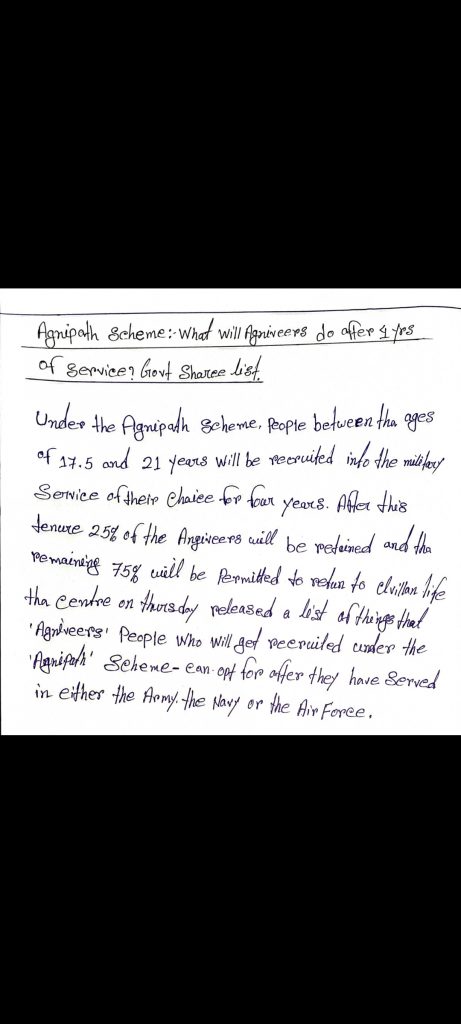 Agnipath Scheme:- What will Agniveers do after 4 yrs
of service? Govt Sharee list.
Under the Agnipath Scheme, People between tha ages
of 17.5 and 21 years will be recruited info the military
Service of their Chaiee for four years. After this
tenure 25% of the Angiveers will be retained and tha
remaining 75% will be Permitted to retun to clvillan life
tha centre on thursday released a list of things that
'Agniveers' People who will get recruited under the
'Agnipath' Scheme- can opt for after they have served
in either the Army, the Navy or the Air Force.